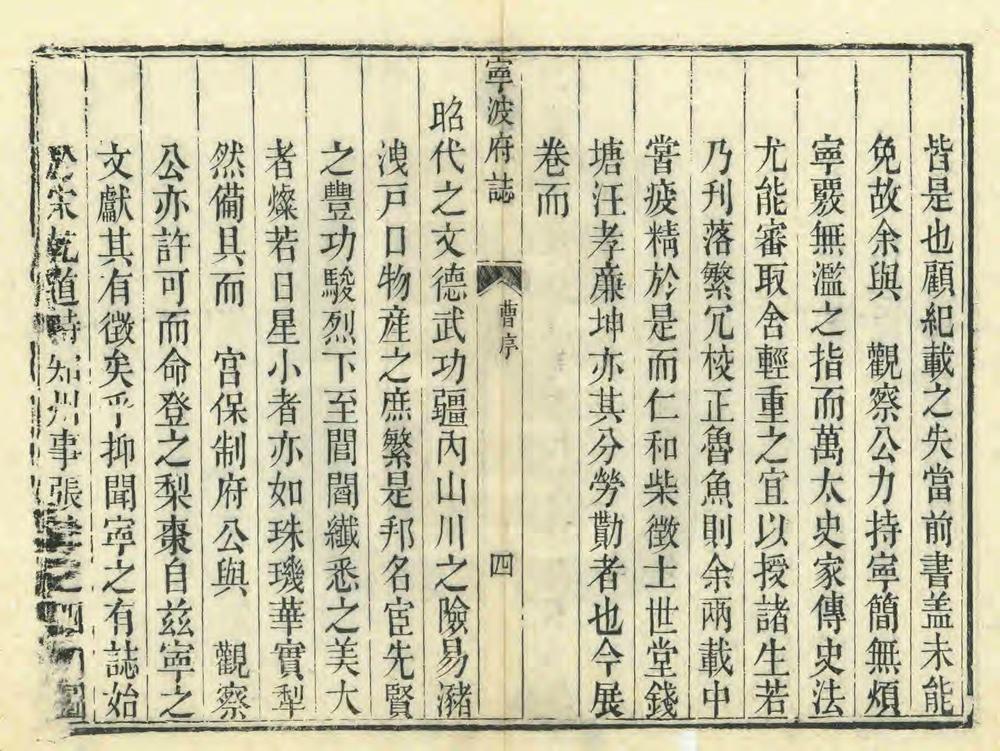 皆是也顧紀載之失當前書盖未能
免故余與　觀察公力持寧簡無煩
寧覈無濫之指而萬太史家傳史法
尤能審取舍輕重之宜以授諸生若
乃刋落繁冗校正魯魚則余兩載中
嘗疲精於是而仁和柴徵士世堂錢
塘汪孝亷坤亦其分勞勩者也今展
卷而
寧波府誌
曹序
四
昭代之文德武功疆內山川之險易瀦
洩戸口物産之庶繁是邦名宦先賢
之豐功駿烈下至閭閻纖悉之美大
者燦若日星小者亦如珠璣華實犁
然備具而　宮保制府公與　觀察
公亦許可而命登之梨棗自茲寧之
文獻其有徵矣乎抑聞寧之有誌始
宋乾道時知州事張